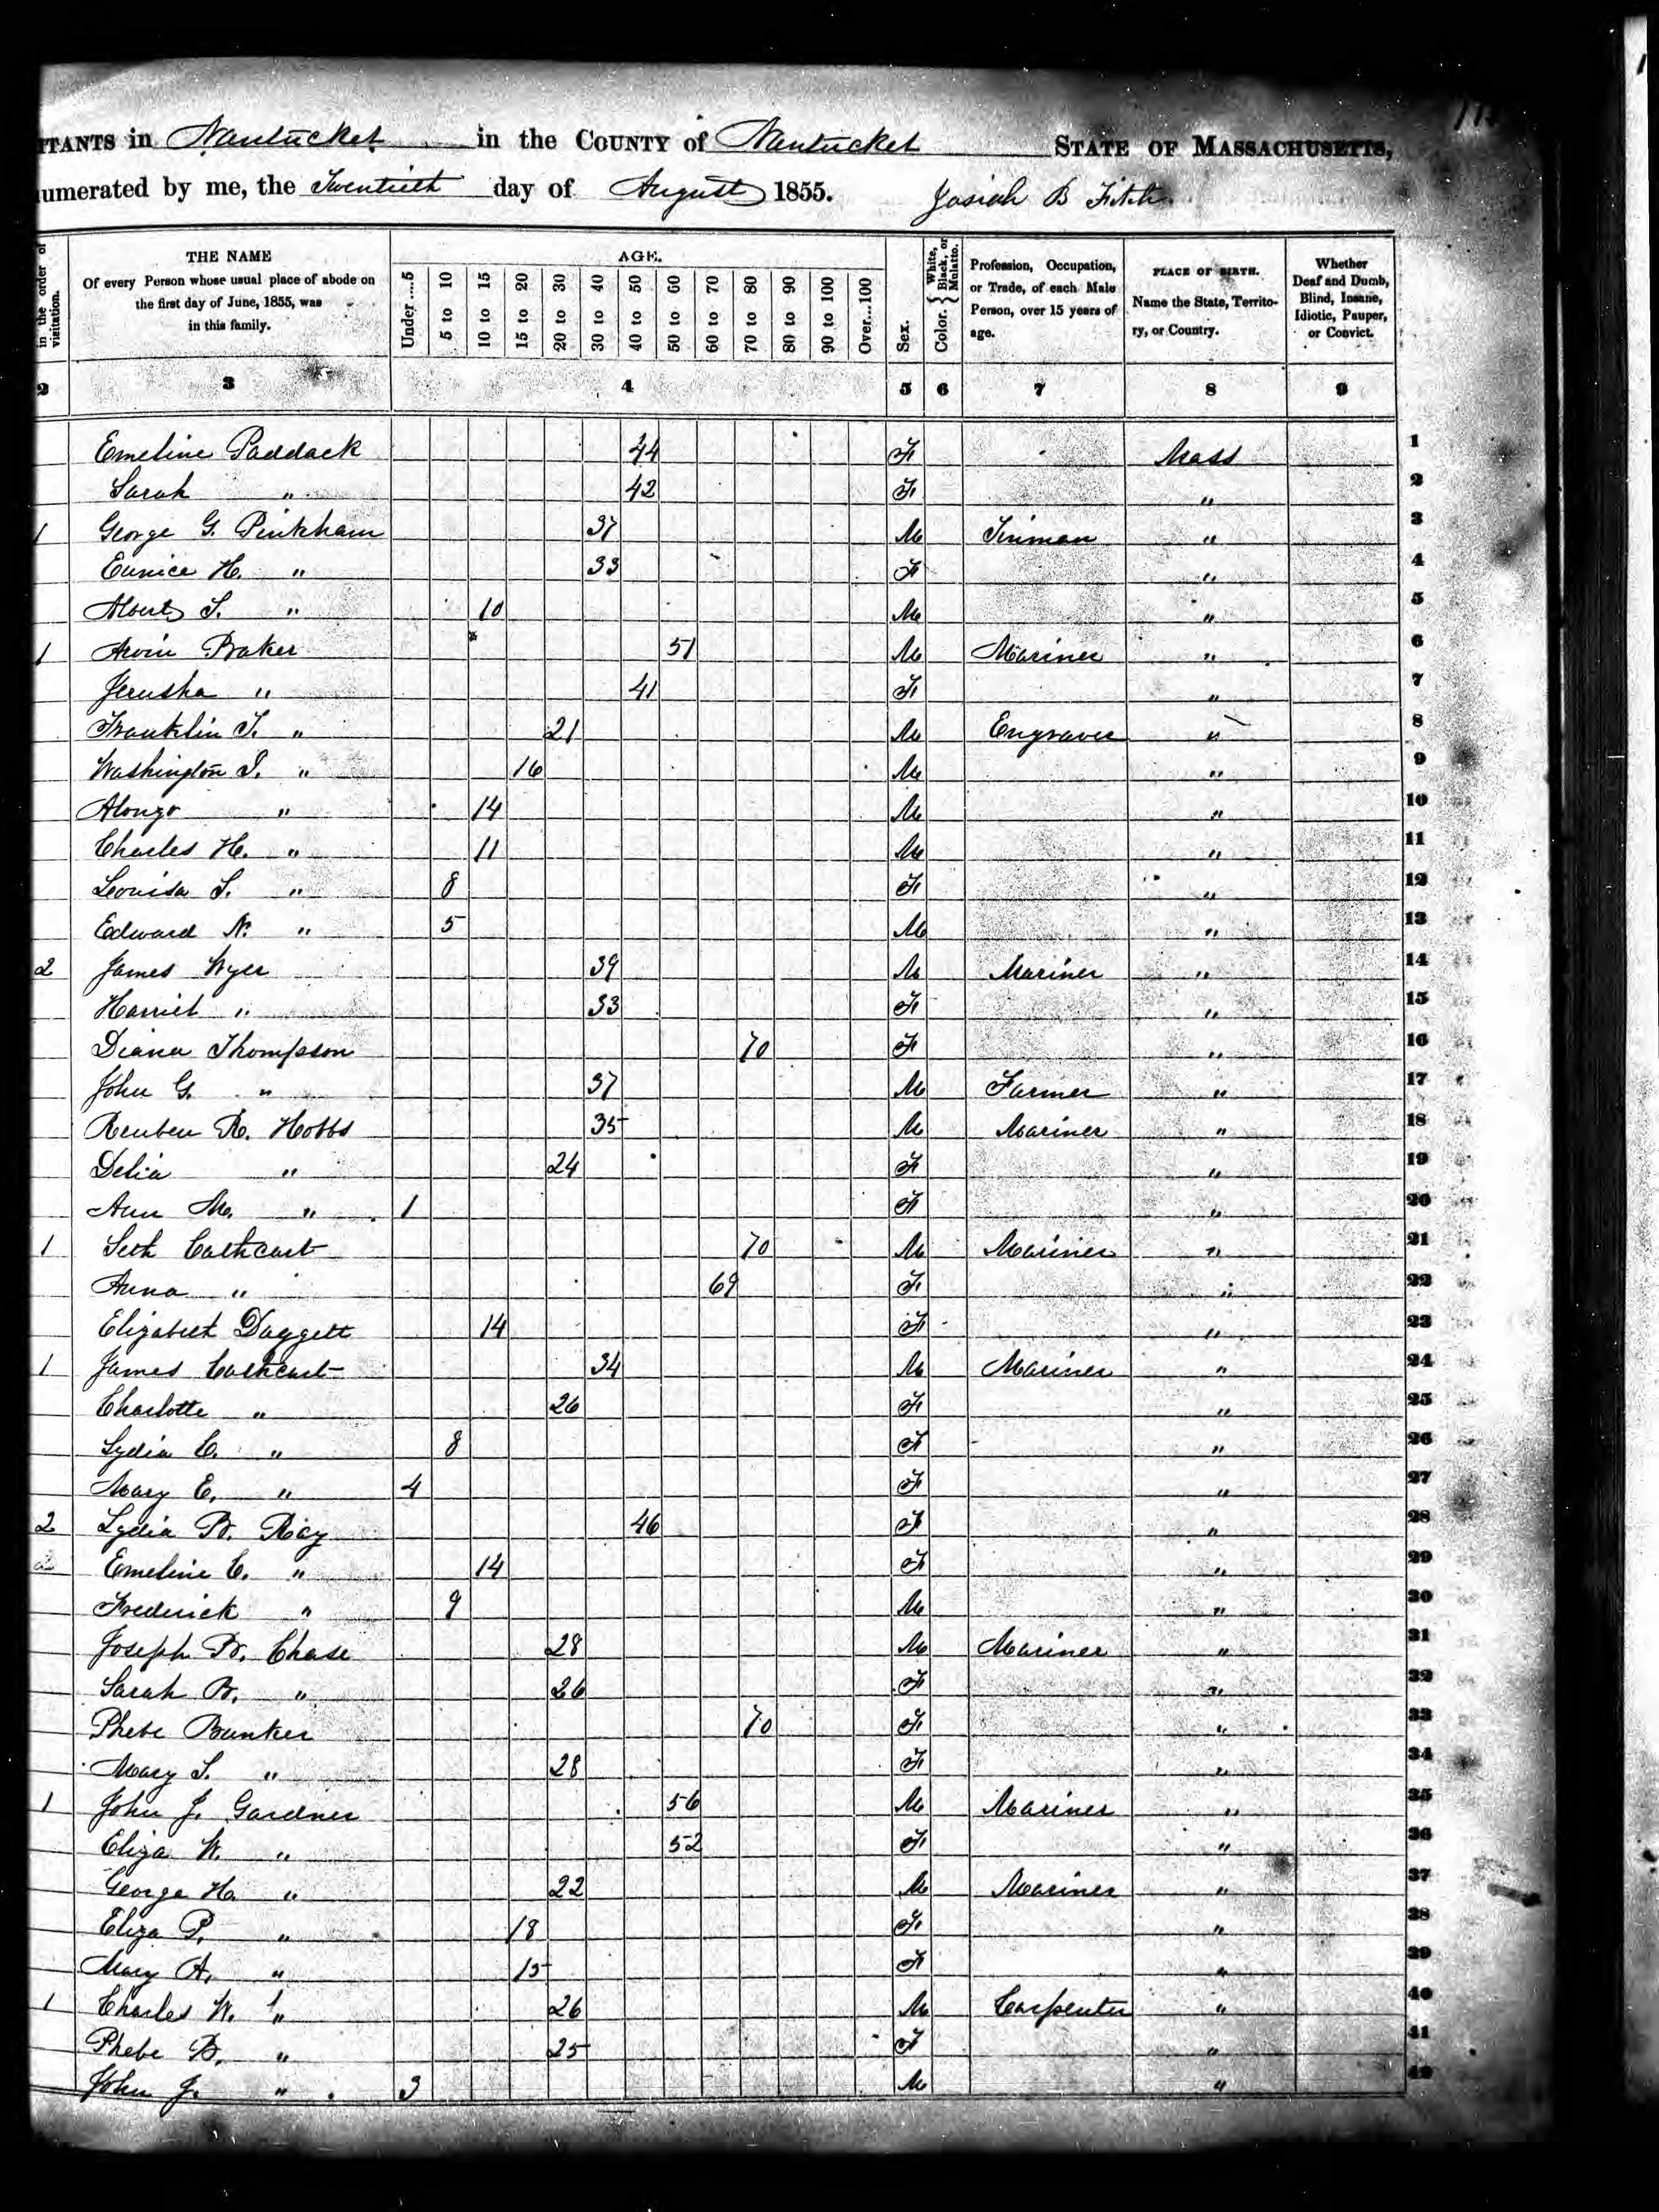 ITANTS in Nantucket in the COUNTY of Nantucket STATE OF MASSACHUSETTS,
umerated by me, the Twentieth day of August 1855. Josiah B Fitch
in the order of visitation.
THE NAME
Of every Person whose usual place of abode on the first day of June, 1855, was in this family.
AGE.
Under....5
5 to 10
10 to 15
15 to 20
20 to 30
30 to 40
40 to 50
50 to 60
60 to 70
70 to 80
80 to 90
90 to 100
Over...100
Sex.
Color. { White, Black, or Mulatto.
Profession, Occupation, or Trade, of each Male Person, over 15 years of age.
PLACE OF BIRTH.
Name the State, Territory, or Country.
Whether Deaf and Dumb, Blind, Insane, Idiotic, Pauper, or Convict.
2 3 4 5 6 7 8 9
Emeline Paddack 44 F Mass 1
Sarah " 42 F " 2
1 George G. Pinkham 37 M Tinman " 3
Eunice H. " 33 F " 4
Albert S. " 10 M " 5
1 Arvin Baker 51 M Mariner " 6
Jerusha " 41 F " 7
Franklin T. " 21 M Engraver " 8
Washington I. " 16 M " 9
Alonzo " 14 M " 10
Charles H. " 11 M " 11
Louisa S. " 8 F " 12
Edward N. " 5 M " 13
2 James Wyer 39 M Mariner " 14
Harriet " 33 F " 15
Diana Thompson 70 F " 16
John G. " 37 M Farmer " 17
Reuben R. Hobbs 35 M Mariner " 18
Delia " 24 F " 19
Ann M. " 1 F " 20
1 Seth Cathcart 70 M Mariner " 21
Anna " 69 F " 22
Elizabeth Daggett 14 F " 23
1 James Cathcart 34 M Mariner " 24
Charlotte " 26 F " 25
Lydia C. " 8 F " 26
Mary E. " 4 F " 27
2 Lydia B. Ray 46 F " 28
2 Emeline C. " 14 F " 29
Frederick " 9 M " 30
Joseph B. Chase 28 M Mariner " 31
Sarah B. " 26 F " 32
Phebe Bunker 70 F " 33
Mary S. " 28 F " 34
1 John J. Gardner 56 M Mariner " 35
Eliza W. " 52 F " 36
George H. " 22 M Mariner " 37
Eliza P. " 18 F " 38
Mary A. " 15 F " 39
1 Charles W. " 26 M Carpenter " 40
Phebe B. " 25 F " 41
John J. " 3 M " 42